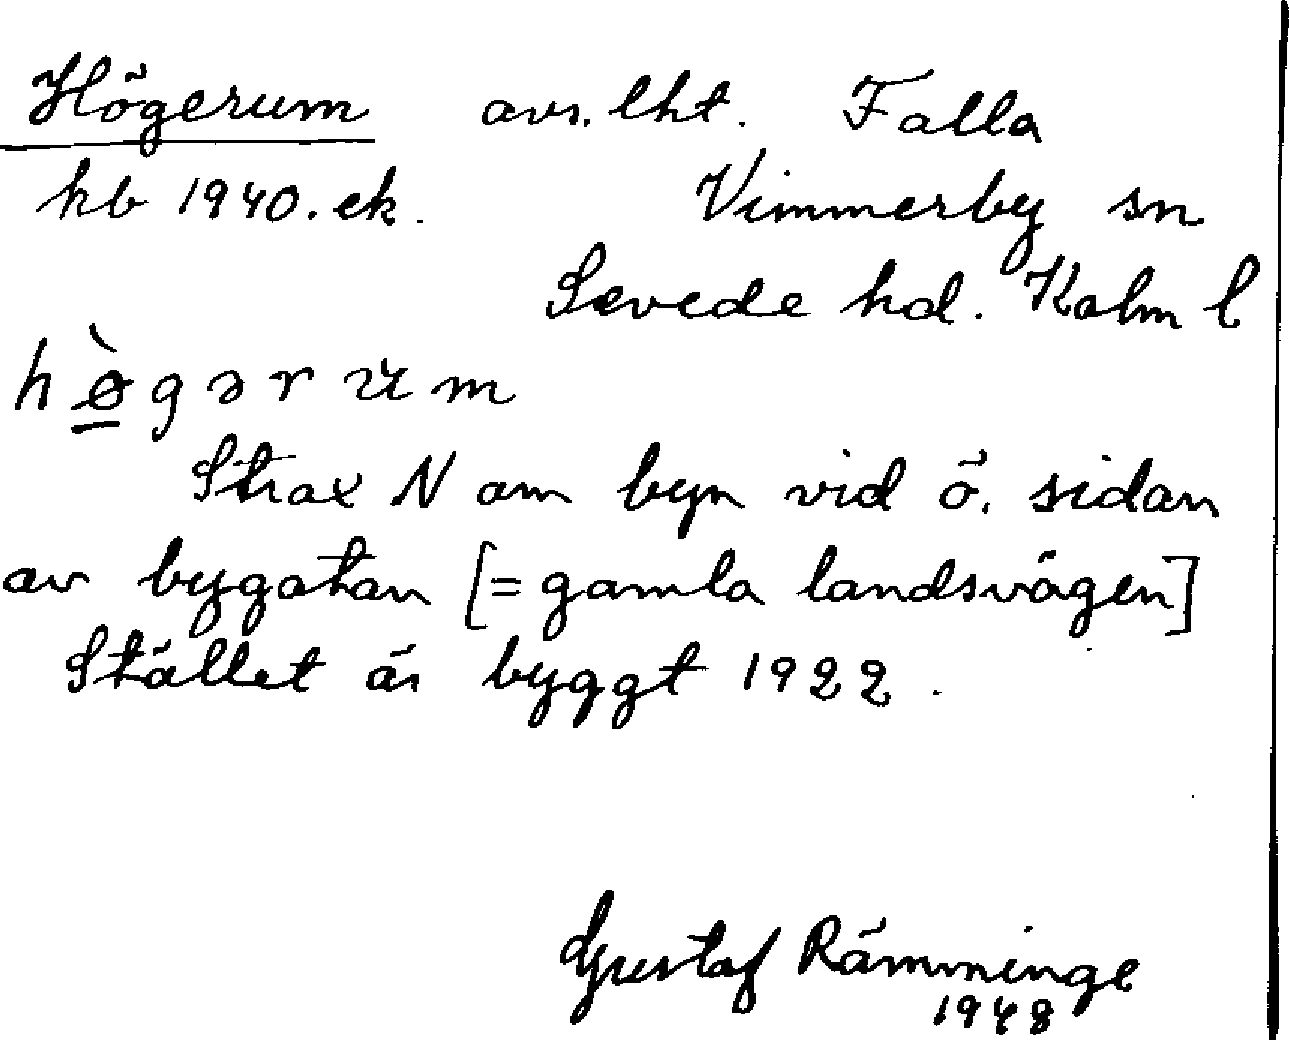 Högerum avs. lht. Falla
kb 1940. ek. Vimmerby sn
Sevede hd. Kalm l
hø̀gərum
Strax N om byn vid ö. sidan
av bygatan [= gamla landsvägen]
Stället är byggt 1922.
Gustaf Rämminge
1948